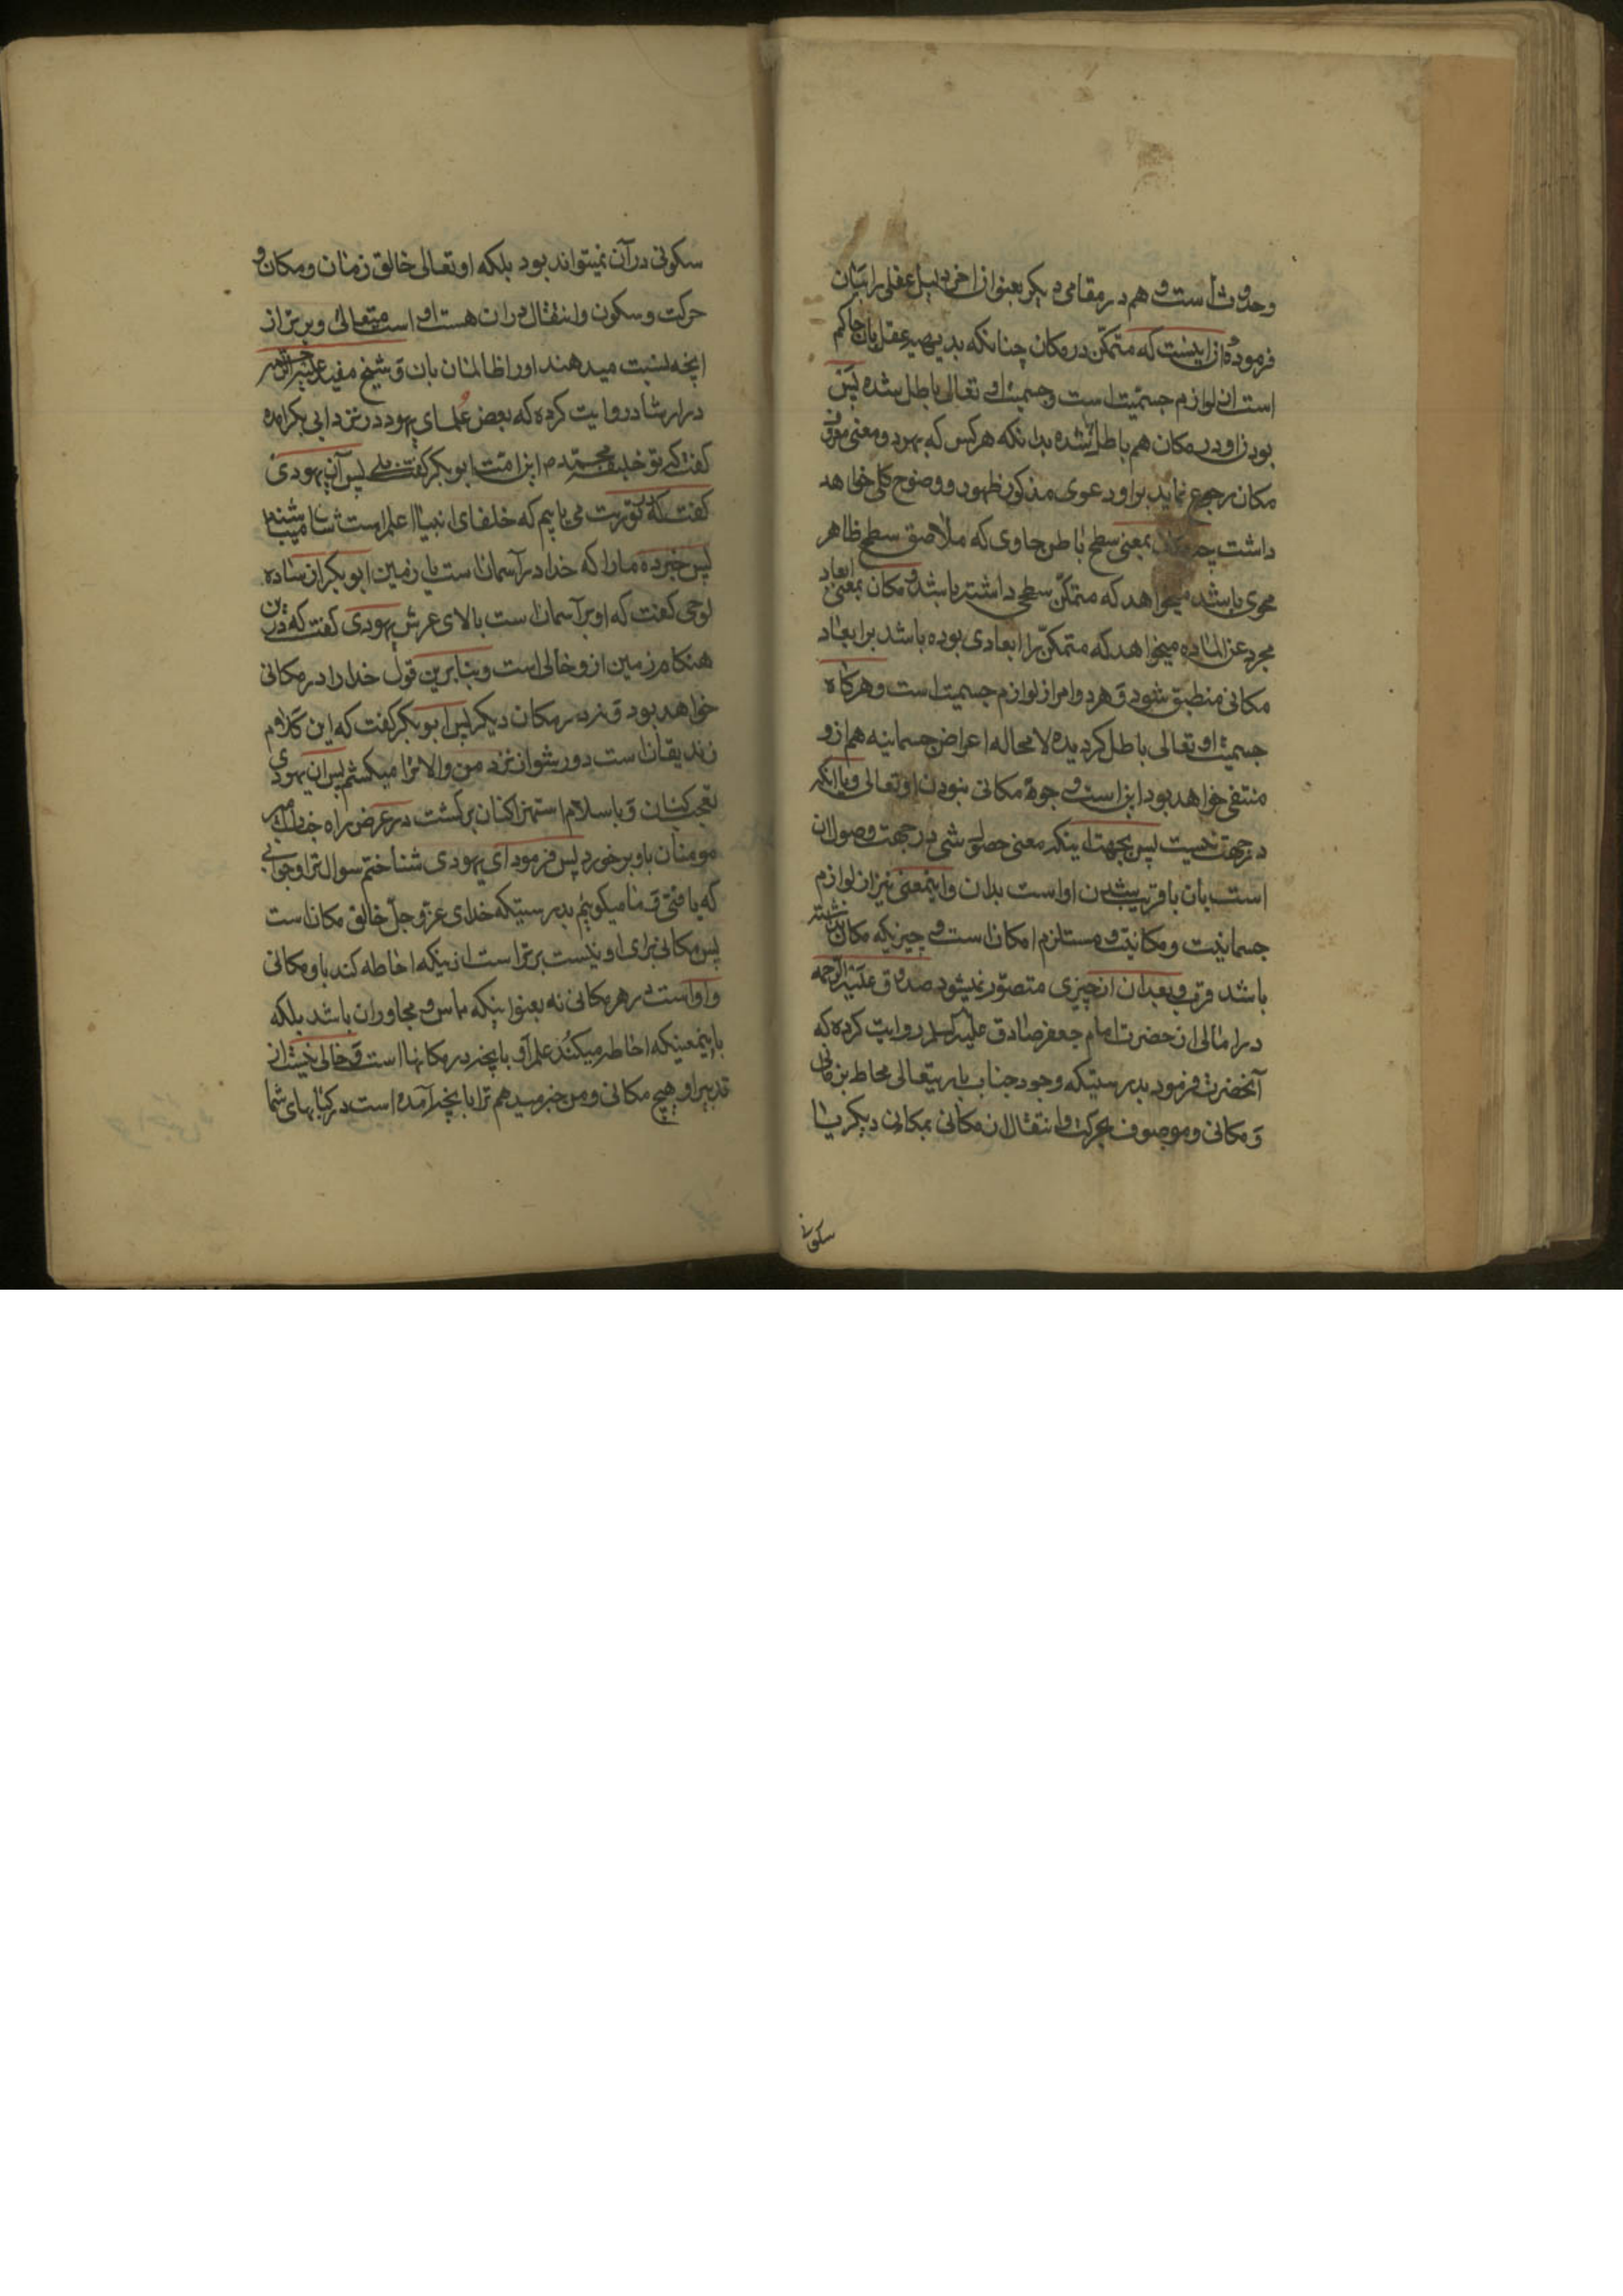 وحدوث است و هم در مقامی دیگر بعنوان اخر دلیل عقلی را بیان
فرموده ازاینست که متمکّن در مکان چنانکه بدیهیه عقل بان حاکم
است از لوازم جسمیّت است و جسمیّت او تعالی باطل شده پس
بودن او در مکان هم باطل شده بدانکه هرکس که بهردو معنی معروف
مکان رجوع نماید براو دعوی مذکور ظهور و وضوح کلی خواهد
داشت چه مکان بمعنی سطح باطن حاوی که ملاصق سطح ظاهر
محوی باشد میخواهد که متمکّن سطحی داشته باشد و مکان بمعنی ابعاد
مجرد عن الماده میخواهد که متمکّن را ابعادی بوده باشد بر ابعاد
مکانی منطبق شود و هر دو امر از لوازم جسمیت است و هرکاه
جسمیّت او تعالی باطل کردیده لا محاله اعراض جسمانیه هم ازو
منتفی خواهد بود این است وجوه مکانی نبودن او تعالی و با انکه
در جهت نیست پس بجهت اینکه معنی حصول شی در جهت وصول ان
است بان یا قریب شدن او است بدان و اینمعنی نیز از لوازم
جسمانیت و مکانیت و مستلزم امکان است و چیزیکه مکان نداشته
باشد قرب و بعد ان از چیزی متصوّر نمیشود صدوق علیه الرحمه
در امالی از حضرت امام جعفر صادق علیه السلم روایت کرده که
آنحضرت فرمود بدرستیکه وجود جناب باریتعالی محاط بزمانی
و مکانی و موصوف بحرکت و انتقال از مکانی بمکانی دیگر یا
سکونی
سکونی در آن نمیتواند بود بلکه او تعالی خالق زمان و مکان و
حرکت و سکون و انتقال در ان هست او است متعالی و برتر از
انچه نسبت میدهند او را ظالمان بان و شیخ مفید علیه الرحمه
در ارشاد روایت کرده که بعض علمای یهود در نزد ابی بکر امده
کفت که تو خلیفه محمّد م این امت ابوبکر کفت بلی پس آن یهودی
کفت که در تورت می یابیم که خلفای انبیا اعلم است شان میباشند
پس خبر ده ما را که خدا در آسمان است یا زمین ابوبکر از ساده
لوحی کفت که او بر آسمان است بالای عرش یهودی کفت که در این
هنکام زمین ازو خالی است و بنا برین قول خدا را در مکانی
خواهد بود و نه در مکان دیکر پس ابوبکر کفت که این کلام
زندیقان است دور شو از نزد من والا ترا میکشم پس ان یهودی
تعجب کنان و باسلام استهزا کنان برکشت در عرض راه جناب امیر
مومنان باو برخورد پس فرمود ای یهودی شناختم سوال ترا و جوابی
که یافتی و ما میکوییم بدرستیکه خدای عزّ و جلّ خالق مکان است
پس مکانی برای او نیست برتر است از نیکه احاطه کند باو مکانی
و او است در هر مکانی نه بعنوانیکه مماس و مجاور ان باشد بلکه
باینمعنیکه احاطه میکند علم او بانچه در مکانها است و خالی نیست از
تدبیر او هیچ مکانی و من خبر میدهم ترا بانچه آمده است در کتابهای شما